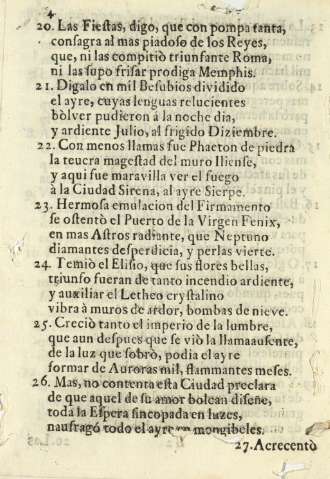 4
20. Las Fiestas, digo, que con pompa tanta,
consagra al mas piadoso de los Reyes,
que, ni las compitiò triunfante Roma,
ni las supo frisar prodiga Memphis.
21. Digalo en mil Besubios dividido
el ayre, cuyas lenguas relucientes
bolver pudieron à la noche dia,
y ardiente Julio, al frigido Diziembre.
22. Con menos llamas fue Phaeton de piedra
la teucra magestad del muro Iliense,
y aqui fue maravilla ver el fuego
à la Ciudad Sirena, al ayre Sierpe.
23. Hermosa emulacion del Firmamento
se ostentò el Puerto de la Virgen Fenix,
en mas Astros radiante, que Neptuno
diamantes desperdicia, y perlas vierte.
24. Temiò el Elisio, que sus flores bellas,
triunfo fueran de tanto incendio ardiente,
y auxiliar el Letheo crystalino
vibra à muros de ardor, bombas de nieve.
25. Creciò tanto el imperio de la lumbre,
que aun despues que se viò la llama ausente,
de la luz que sobrò, podia el ayre
formar de Auroras mil, flammantes meses.
26. Mas, no contenta esta Ciudad preclara
de que aquel de su amor bolcan diseñe,
toda la Espera sincopada en luzes,
naufragò todo el ayre en mongibeles.
27. Acrecentò